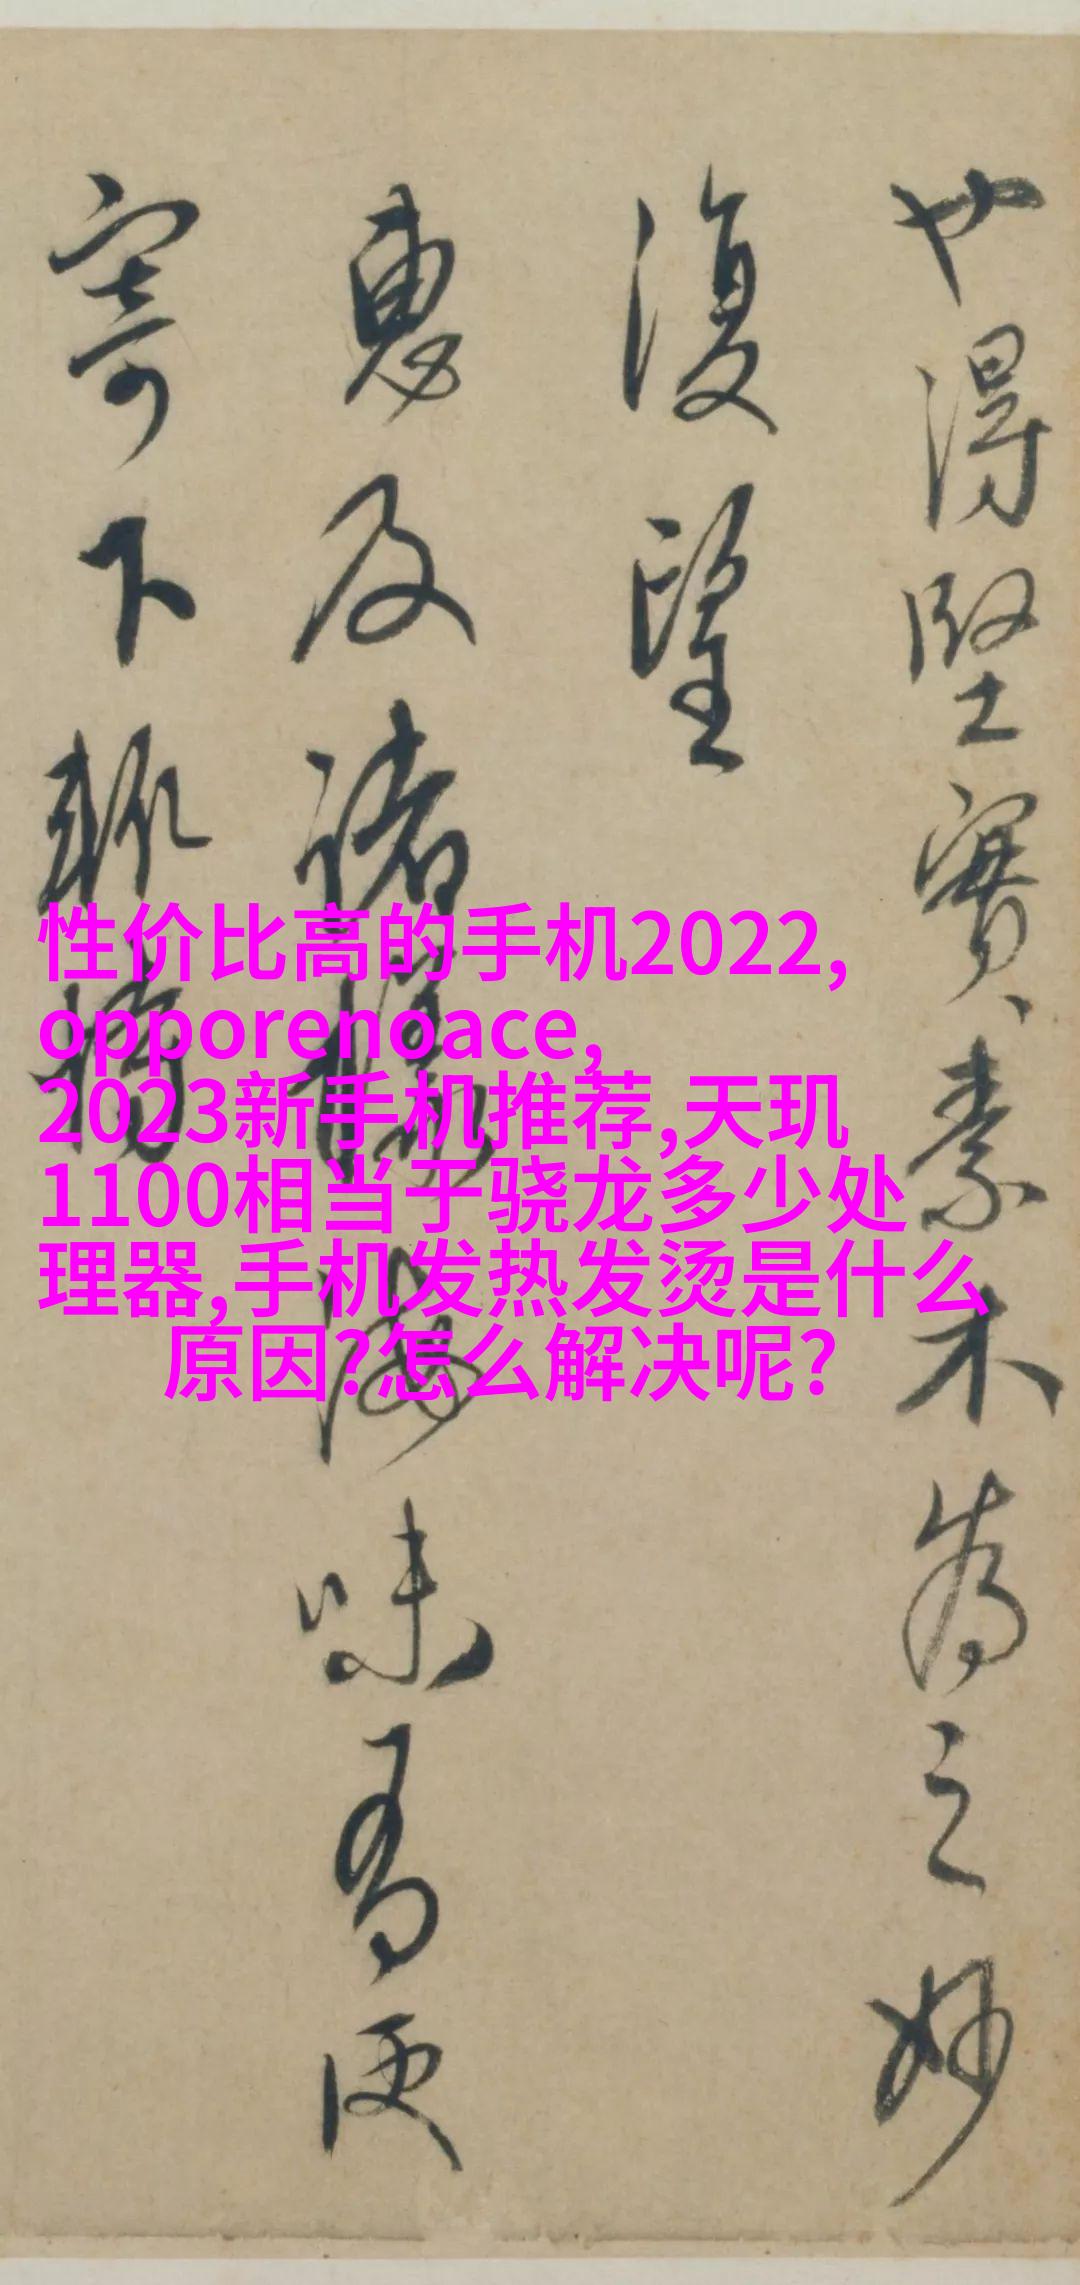 也得堅實素木為之妙
復望
惠及諸海味有便
寄下
性价比高的手机2022,
opporenoace,
2023新手机推荐,天玑
1100相当于骁龙多少处
理器,手机发热发烫是什么
原因?怎么解决呢?